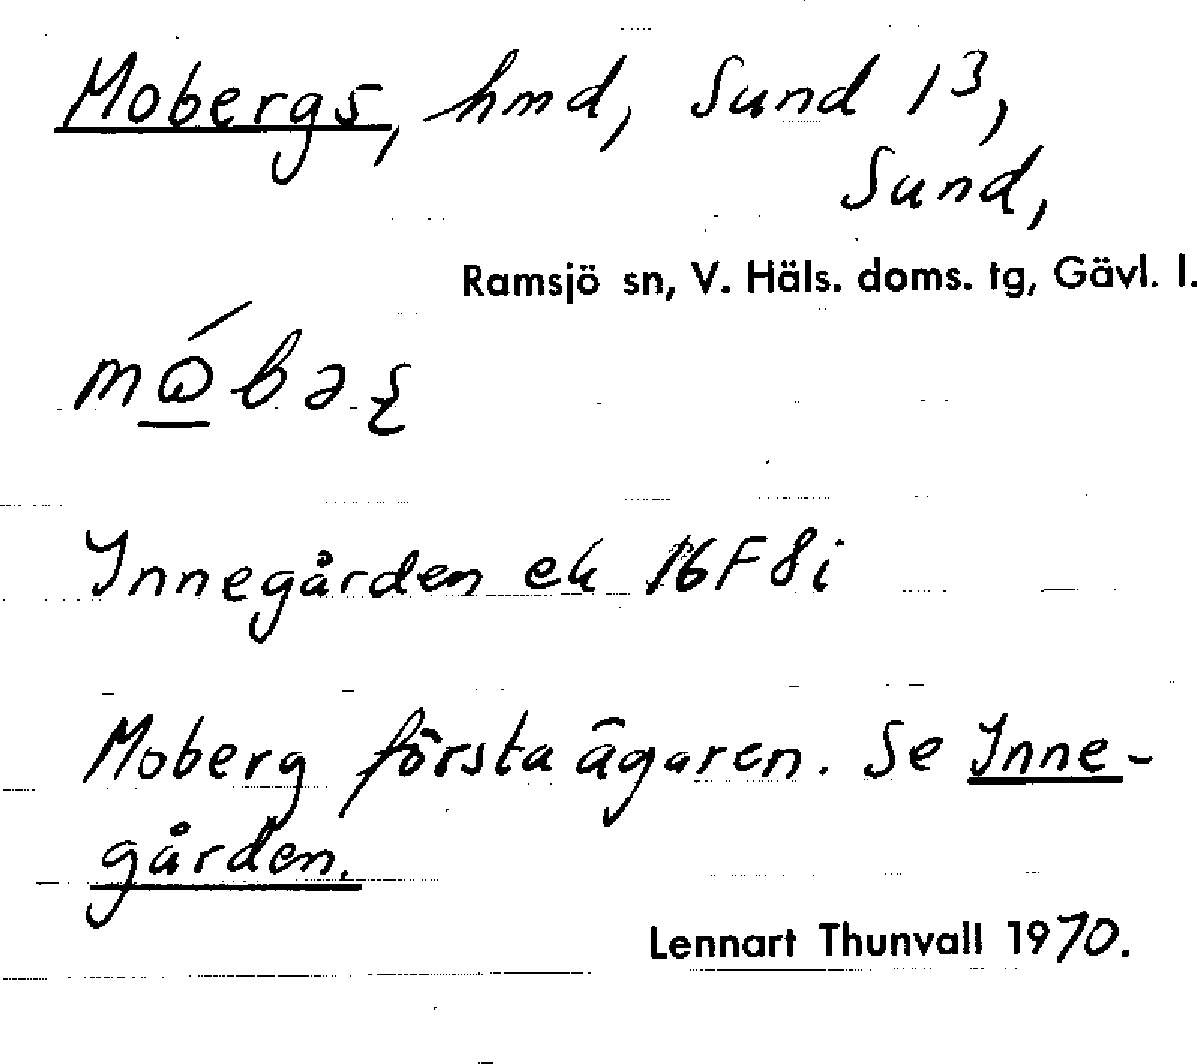 Mobergs, hmd, Sund 1³,
Sund,
Ramsjö sn, V. Häls. doms. tg, Gävl. l.
Innegården ek 16F8i
Moberg första ägaren. Se Inne-
gården.
Lennart Thunvall 1970.